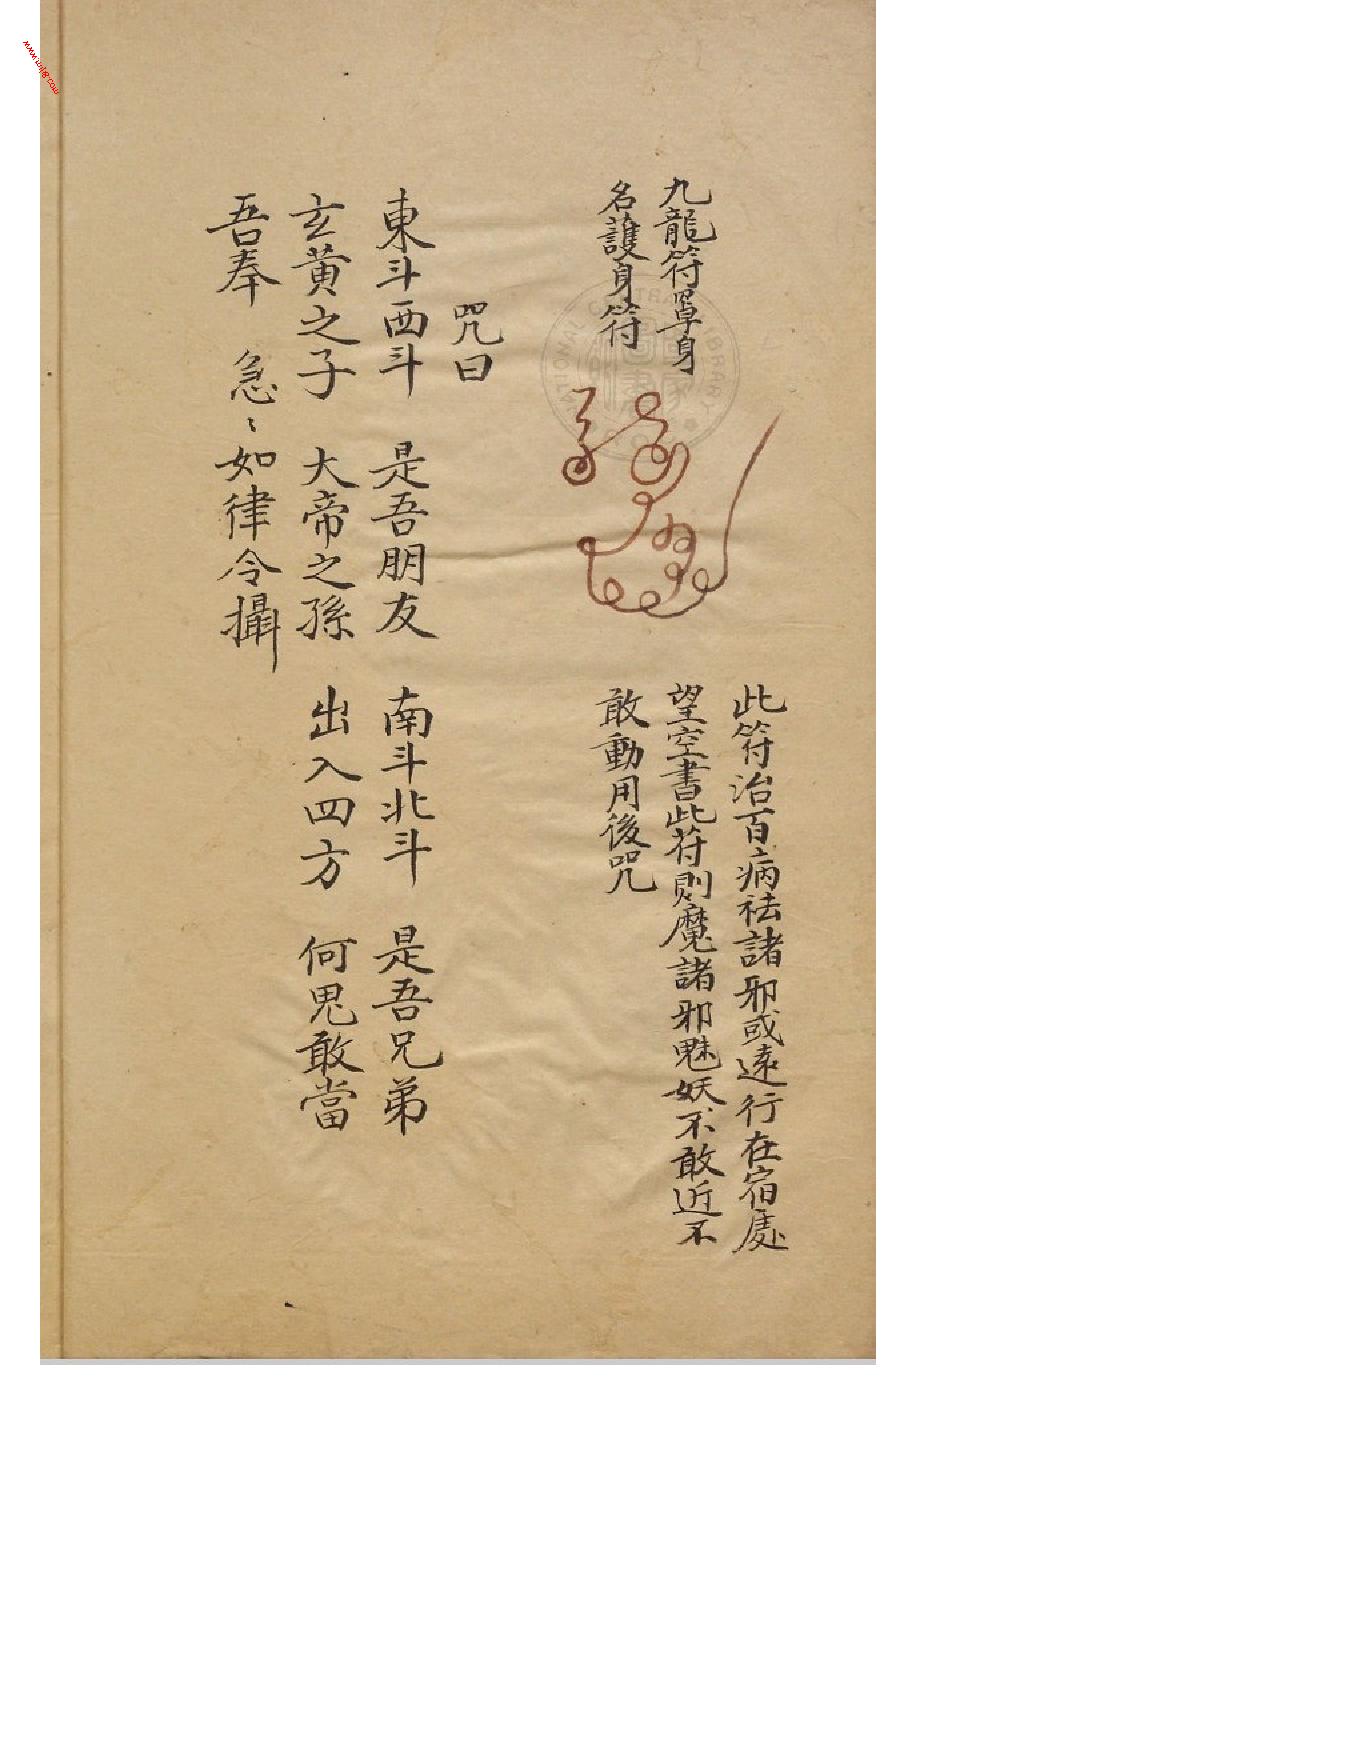 九龍符罩身
名護身符
此符治百病祛諸邪或遠行在宿處
望空書此符則魔諸邪魅妖不敢近不
敢動用後咒
咒曰
東斗西斗 是吾朋友 南斗北斗 是吾兄弟
玄黄之子 大帝之孫 出入四方 何鬼敢當
吾奉 急〻如律令攝
NATIONAL LIBRARY